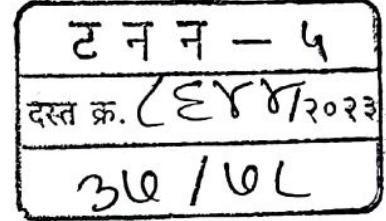 ट न न — ५
दस्त क्र. ८६४४/२०२३
३७ / ७८